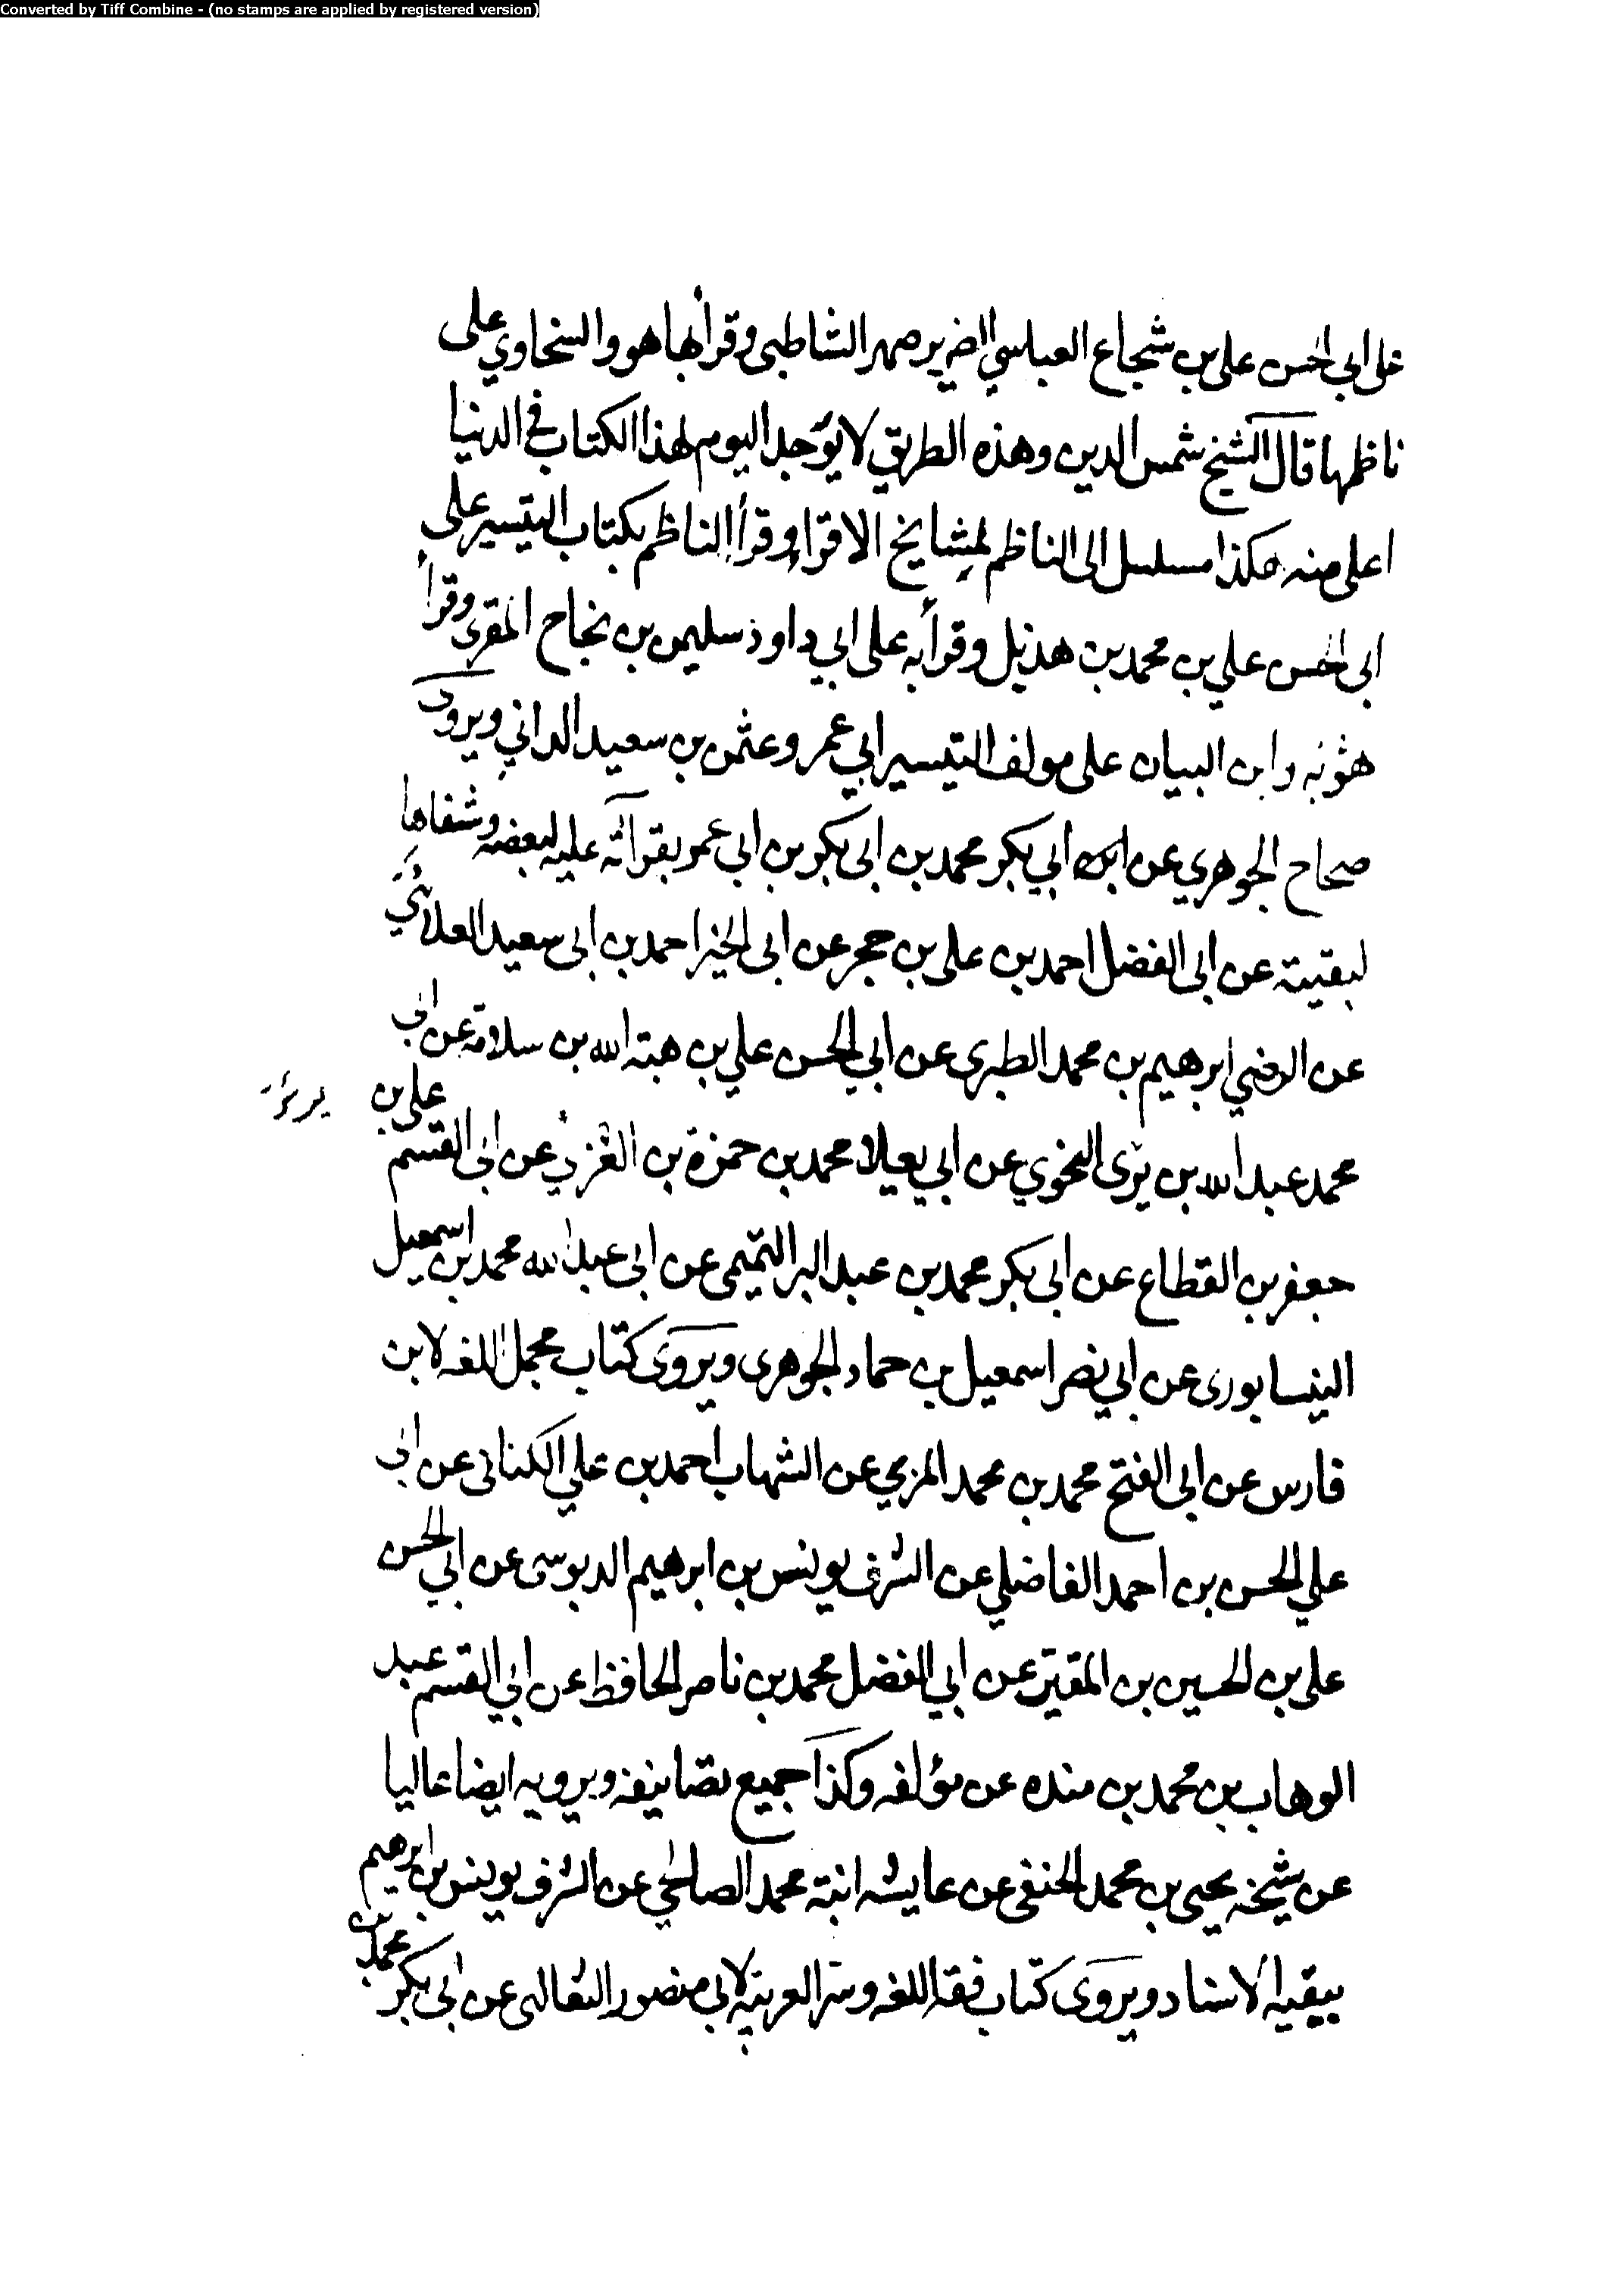 Converted by Tiff Combine - (no stamps are applied by registered version)
على ابى الحسن على بن شجاع العباسي الضرير صهر الشاطبى وقرأ بها هو والسخاوي على
ناظمها قال الشيخ شمس الدين وهذه الطريق لا يوجد اليوم لهذا الكتاب في الدنيا
اعلى منه هكذا مسلسل الى الناظم بمشايخ الاقراء وقرأ الناظم بكتاب التيسير على
ابى الحسن علي بن محمد بن هذيل وقرأ به على ابي داود سليمن بن نجاح المقرى وقرأ
هو به وابن البيان على مولف التيسير ابي عمرو عثمن بن سعيد الداني ويروى
صحاح الجوهري عن ابى بكر محمد بن ابى بكر بن ابي عمر بقرأته عليه لبعضه وشفاها
لبقيته عن ابى الفضل احمد بن على بن حجر عن ابى الخير احمد بن ابى سعيد العلائي
عن الرضي ابرهيم بن محمد الطبرى عن ابي الحسن علي بن هبة الله بن سلامة عن ابي
محمد عبد الله بن برى النحوي عن ابي يعلا محمد بن حمزة بن العرقي عن ابى القسم على بن
جعفر بن القطاع عن ابى بكر محمد بن عبد البر التميمى عن ابى عبد الله محمد بن اسمعيل
النيسابورى عن ابي نصر اسمعيل بن حماد الجوهرى ويروى كتاب مجمل اللغه لابن
فارس عن ابى الفتح محمد بن محمد المزي عن الشهاب احمد بن علي الكنانى عن ابى
علي الحسن بن احمد الفاضلي عن الشرف يونس بن ابرهيم الدبوسى عن ابي الحسن
على بن الحسين بن المقير عن ابي الفضل محمد بن ناصر الحافظ عن ابي القسم عبد
الوهاب بن محمد بن منده عن مؤلفه وكذا جميع تصانيفه ويرويه ايضا عاليا
عن شيخه يحيى بن محمد الحنفى عن عايشه ابنة محمد الصالحي عن الشرف يونس بن ابرهيم
ببقية الاسناد ويروى كتاب فقه اللغه وسر العربية لابي منصور الثعالبى عن ابى بكر محمد بن